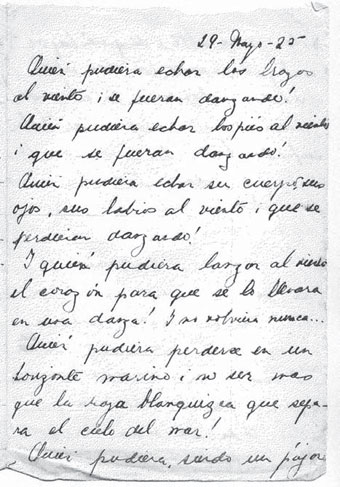 29-Mayo-25
Quién pudiera echar los brazos
al viento ¡se fueran danzando!
Quién pudiera echar los piés al viento
¡que se fueran danzando!
Quién pudiera echar su cuerpo sus
ojos, sus labios al viento ¡que se
perdieran danzando!
I quién pudiera lanzar al viento
el corazón para que se lo llevara
en una danza! I no volviera nunca...
Quién pudiera perderse en un
horizonte marino ¡no ser mas
que la raya blanquizca que sepa-
ra el cielo del mar!
Quién pudiera, siendo un pájaro